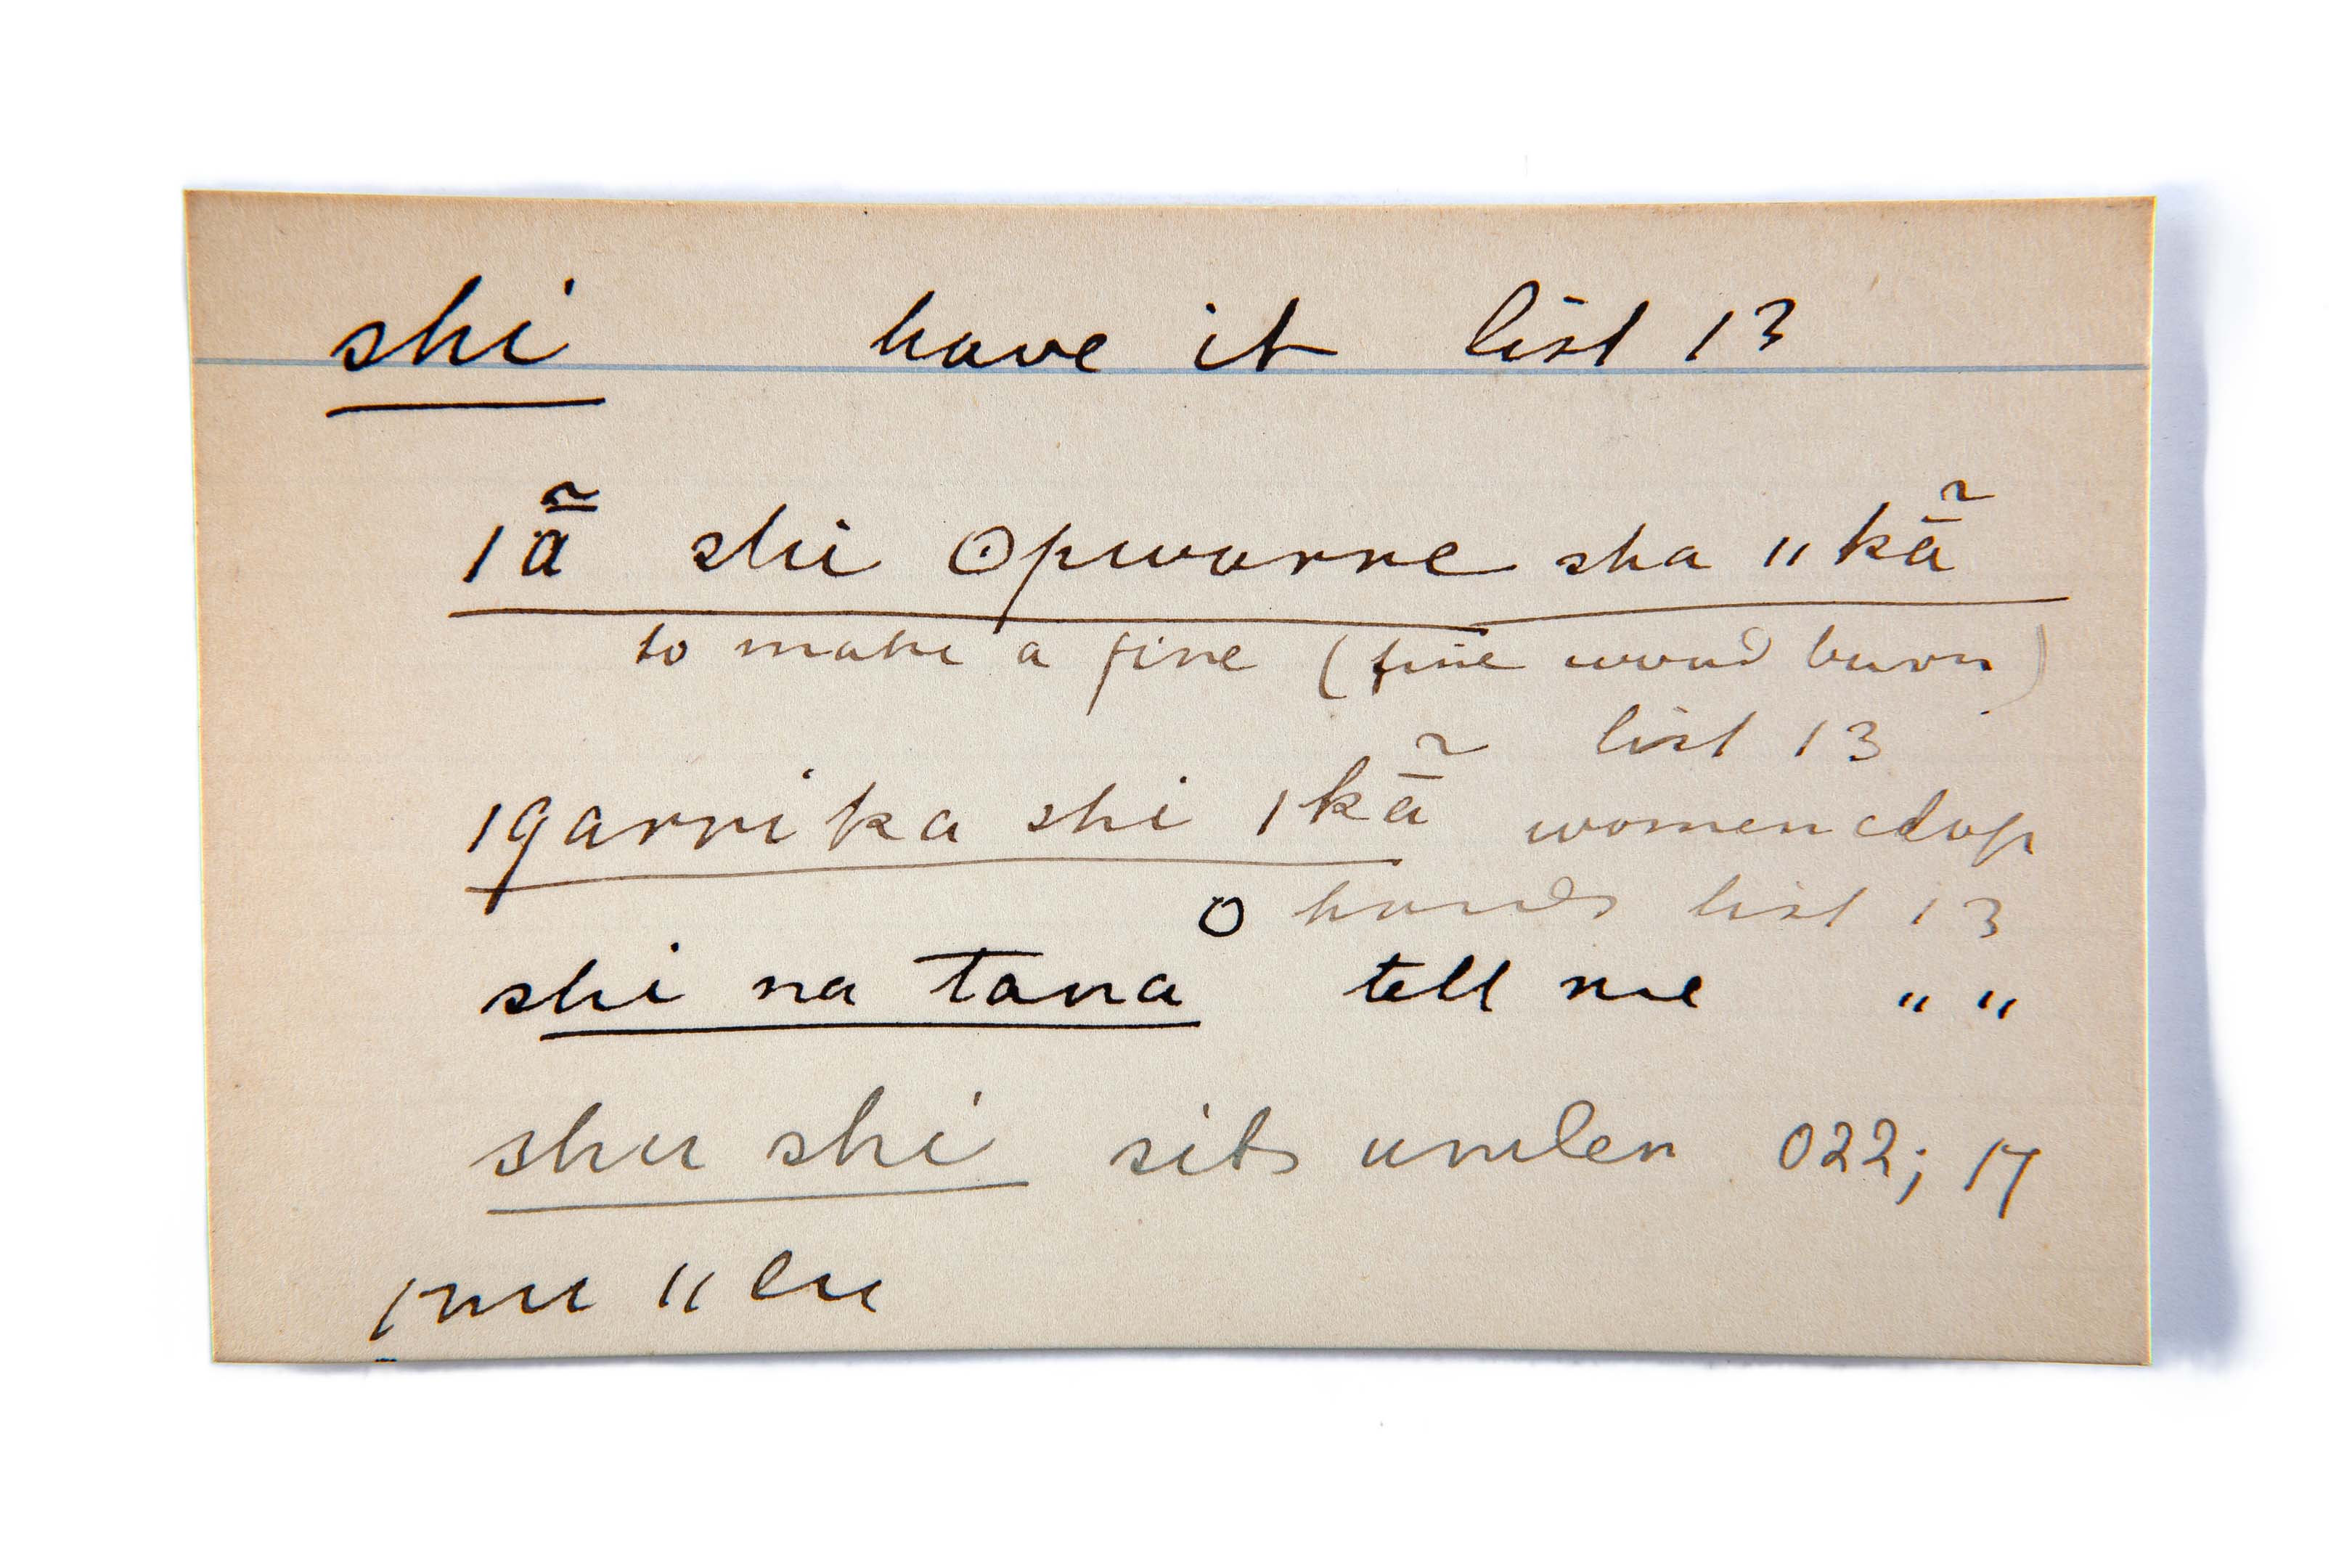 shi have it list 13
ǀā̃ shi ʘpwarre sha ǁkā̃
to make a fire (fire wood burn)
list 13
ǀgarrika shi ǀkā̃ women clap
hands list 13
shi na tana tell me " "
shu shi sits under 022; 17
ǀnu ǁeu